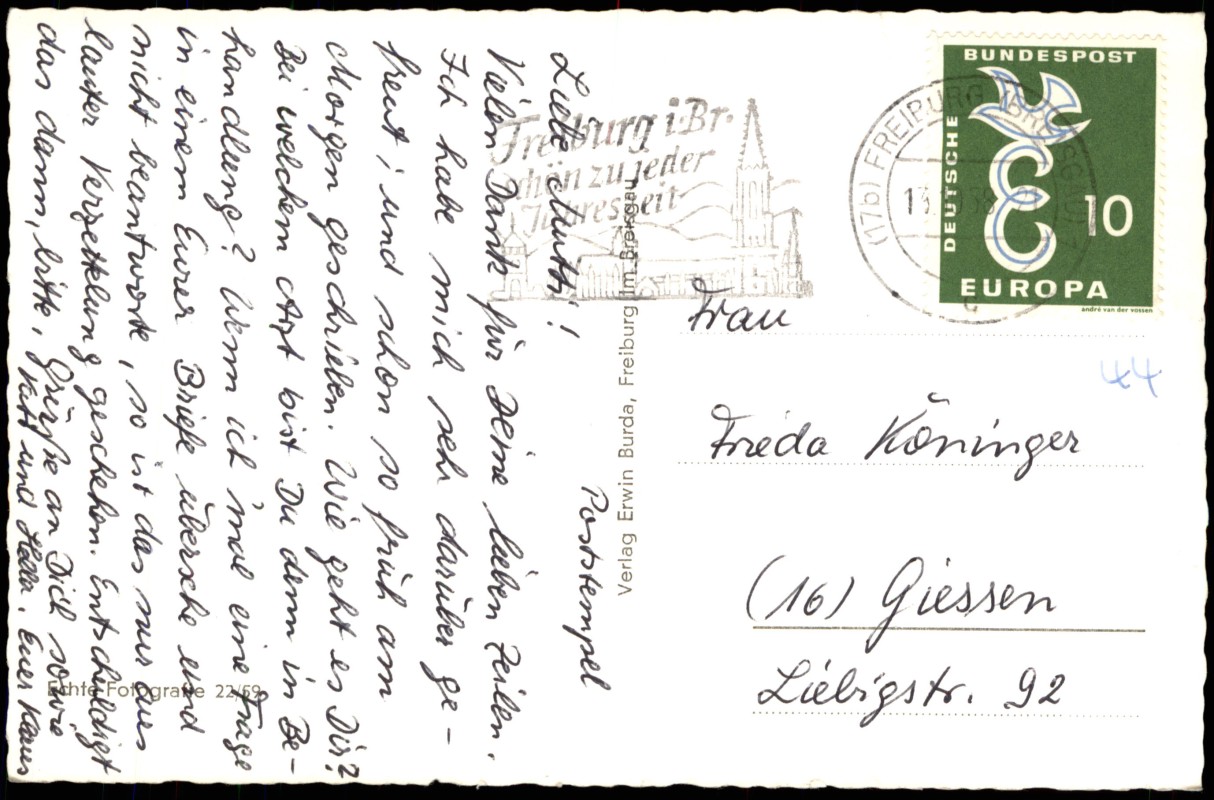 Poststempel
Liebe Mutti!
Vielen Dank für Deine lieben Zeilen.
Ich habe mich sehr darüber ge-
freut, und schon so früh am
Morgen geschrieben. Wie geht es Dir?
Bei welchem Arzt bist Du denn in Be-
handlung? Wenn ich 'mal eine Frage
in einem Eurer Briefe übersehe und
nicht beantworte, so ist das nur aus
lauter Verzettelung geschehen. Entschuldigt
das dann, bitte. Grüße an Dich sowie
Kati und Hella. Euer Klaus
Echte Fotografie 22/59
Verlag Erwin Burda, Freiburg im Breisgau
Freiburg i. Br.
schön zu jeder
Jahreszeit
(17b) FREIBURG (BREISG)
c
DEUTSCHE BUNDESPOST
10
EUROPA
andré van der vossen
44
Frau
Frieda Köninger
(16) Giessen
Liebigstr. 92